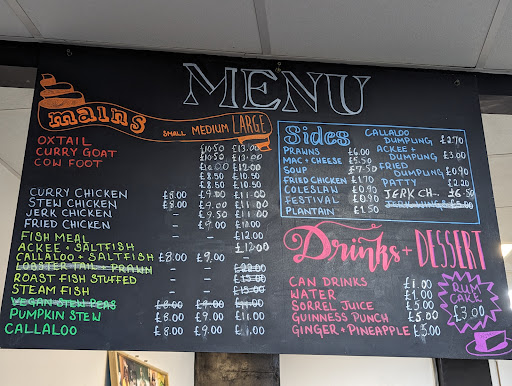 MENU
mains
SMALL MEDIUM LARGE
OXTAIL £10.50 £13.00
CURRY GOAT £10.50 £13.00
COW FOOT £12.00
£8.50 £10.50
£8.50 £10.50
CURRY CHICKEN £8.00 £9.00 £11.00
STEW CHICKEN £8.00 £9.00 £11.00
JERK CHICKEN - £9.50 £11.00
FRIED CHICKEN - £9.00 £12.00
FISH MEAL - - £12.00
ACKEE + SALTFISH £12.00
CALLALOO + SALTFISH £8.00 £9.00 -
LOBSTER TAIL + PRAWN - - £22.00
ROAST FISH STUFFED - -
STEAM FISH - -
VEGAN STEW PEAS £8.00 £9.00 £11.00
PUMPKIN STEW £8.00 £9.00 £11.00
CALLALOO £8.00 £9.00 £11.00
Sides
PRAWNS £6.00
MAC + CHEESE £5.50
SOUP £7.50
FRIED CHICKEN £1.70
COLESLAW £0.90
FESTIVAL £0.90
PLANTAIN £1.50
CALLALOO
DUMPLING £2.70
ACKEE +
DUMPLING £3.00
FRIED
DUMPLING £0.90
PATTY £2.20
JERK CH.. £6.50
JERK WINGS £5.50
Drinks + DESSERT
CAN DRINKS £1.00
WATER £1.00
SORREL JUICE £5.00
GUINNESS PUNCH £5.00
GINGER + PINEAPPLE £5.00
RUM
CAKE
£3.00